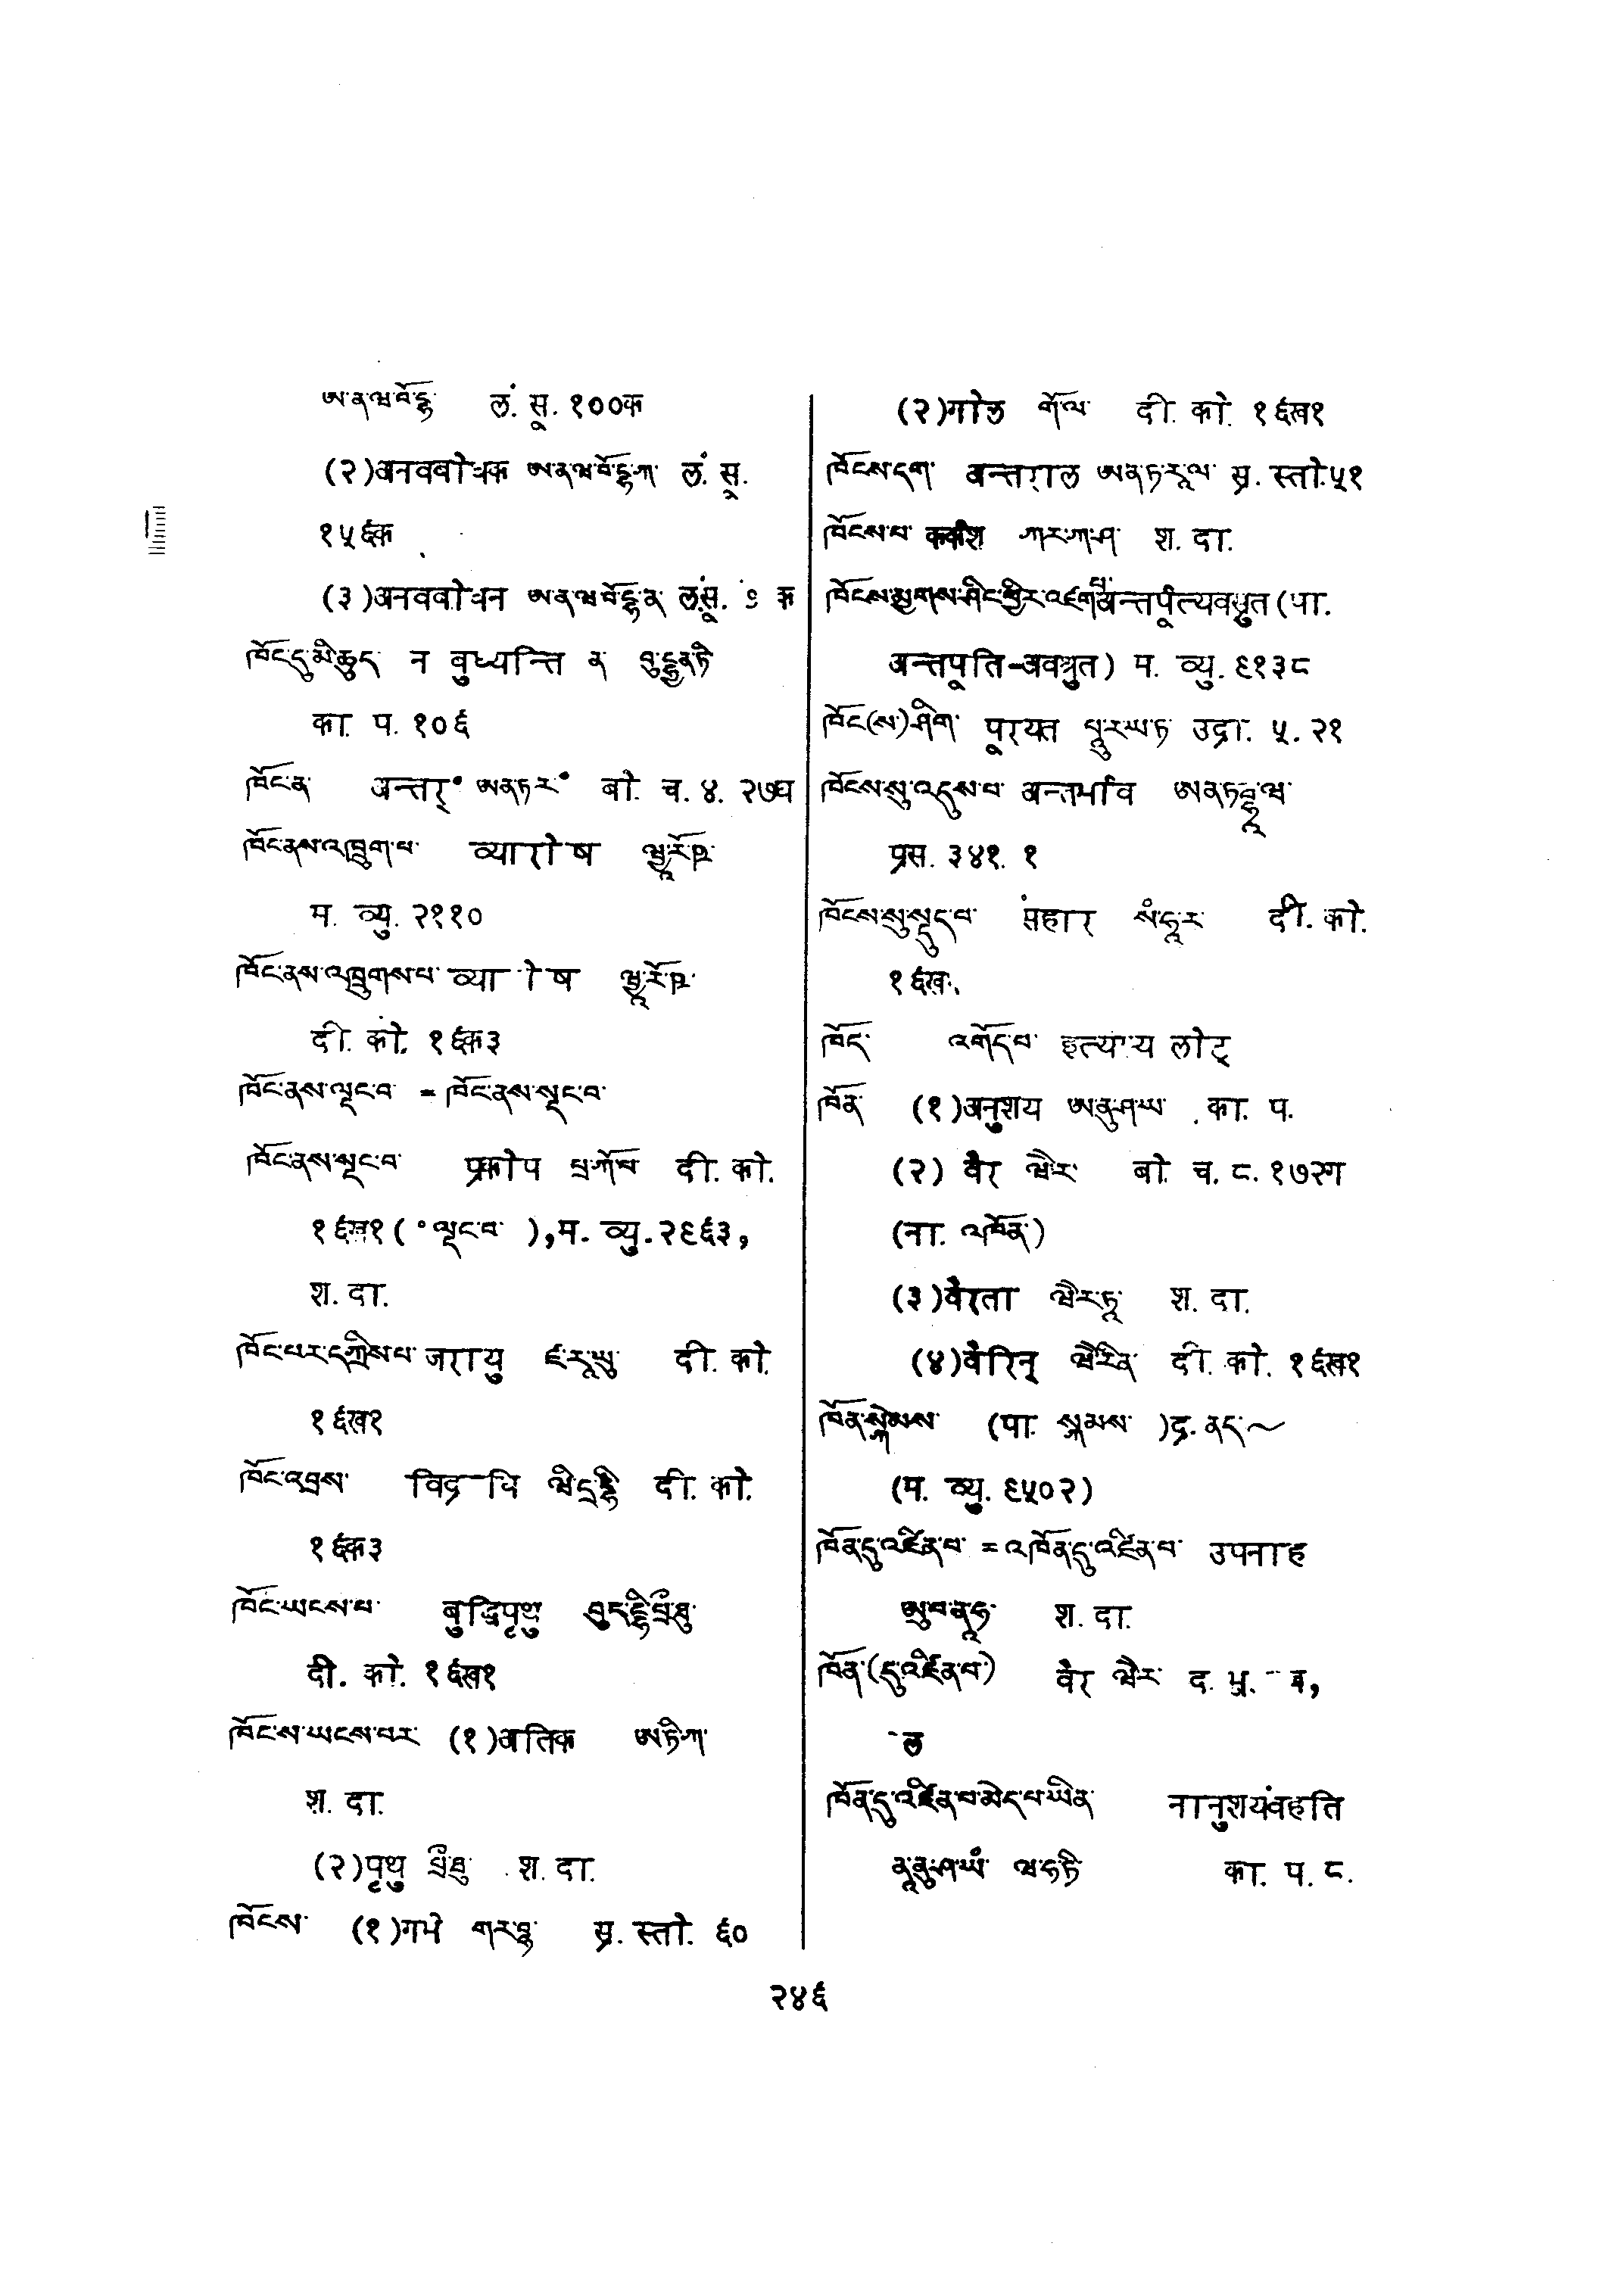 ཨ་ན་ཝ་བོ་དྷ་ लं. सू. १००क
(२)अनवबोधक ཨ་ན་ཝ་བོ་དྷ་ཀ་ लं. सू.
१५६क
(३)अनवबोधन ཨ་ན་ཝ་བོ་དྷ་ན་ लं.सू. क
ཁོང་དུ་མི་ཆུད་ न बुध्यन्ति ན་ བུ་དྷྱནྟི་
का. प. १०६
ཁོང་ན་ अन्तर्॰ ཨནྟར་॰ बो. च. ४. २७घ
ཁོང་ནས་འཁྲུག་པ་ व्यारोष ཝྱཱ་རོ་ཥ་
म. व्यु. २११०
ཁོང་ནས་འཁྲུགས་པ་ व्या ोष ཝྱཱ་རོ་ཥ་
दी. को. १६क३
ཁོང་ནས་ལྡང་བ་ = ཁོང་ནས་སྡང་བ་
ཁོང་ནས་སྡང་བ་ प्रकोप པྲ་ཀོ་པ་ दी. को.
१६ख१ (॰ལྡང་བ་ ),म. व्यु. २९६३,
श. दा.
ཁོང་པར་དཀྲིས་པ་ जरायु ཛ་རཱ་ཡུ་ दी. को.
१६ख१
ཁོང་འབྲས་ विद्रधि ཝི་དྲ་དྷི་ दी. को.
१६क३
ཁོང་ཡངས་པ་ बुद्धिपृथु བུད་དྷི་པྲྀ་ཐུ་
दी. को. १६ख१
ཁོང་ས་ཡངས་པར་ (१)अतिक ཨ་ཏི་ཀ་
श. दा.
(२)पृथु པྲྀ་ཐུ་ श. दा.
ཁོངས་ (१)गर्भ གརྦྷ་ स्र. स्तो. ६०
(२)गोल གོ་ལ་ दी. को. १६ख१
ཁོངས་དག་ अन्तराल ཨནྟ་རཱ་ལ་ स्र. स्तो.५१
ཁོངས་པ་ कर्कश ཀར་ཀ་ཤ་ श. दा.
ཁོངས་མྱགས་ཤིང་ཕྱིར་འཛག་པའི་ अन्तर्पूत्यवश्रुत (पा.
अन्तपूति-अवश्रुत) म. व्यु. ९१३८
ཁོང་(ས་)ཤིག་ पूरयत པཱུ་ར་ཡ་ཏ་ उद्रा. ५. २१
ཁོངས་སུ་འདུས་པ་ अन्तर्भाव ཨནྟརྦྷཱ་ཝ་
प्रस. ३४१. १
ཁོངས་སུ་སྡུད་པ་ संहार སཾ་ཧཱ་ར་ दी. को.
१६ख
ཁོད་ འགོད་པ་ इत्यस्य लोट्
ཁོན་ (१)अनुशय ཨ་ནུ་ཤ་ཡ་ का. प.
(२) वैर ཝཻ་ར་ बो. च. ८. १७२ग
(ना. འཁོན་)
(३)वैरता ཝཻ་ར་ཏཱ་ श. दा.
(४)वैरिन् ཝཻ་རི་ན་ दी. को. १६ख१
ཁོན་སྐེམས་ (पा. སྐམས་ )द्र. ནད་~
(म. व्यु. ९५०२)
ཁོན་དུ་འཛིན་པ་ = འཁོན་དུ་འཛིན་པ་ उपनाह
ཨུ་པ་ནཱ་ཧ་ श. दा.
ཁོན་(དུ་འཛིན་པ་) वैर ཝཻ་ར་ द. भू.
ल
ཁོན་དུ་འཛིན་པ་མེད་པ་ཡིན་ नानुशयंवहति
ནཱ་ནུ་ཤ་ཡཾ་ ཝ་ཧ་ཏི་ का. प. ८.
२४६